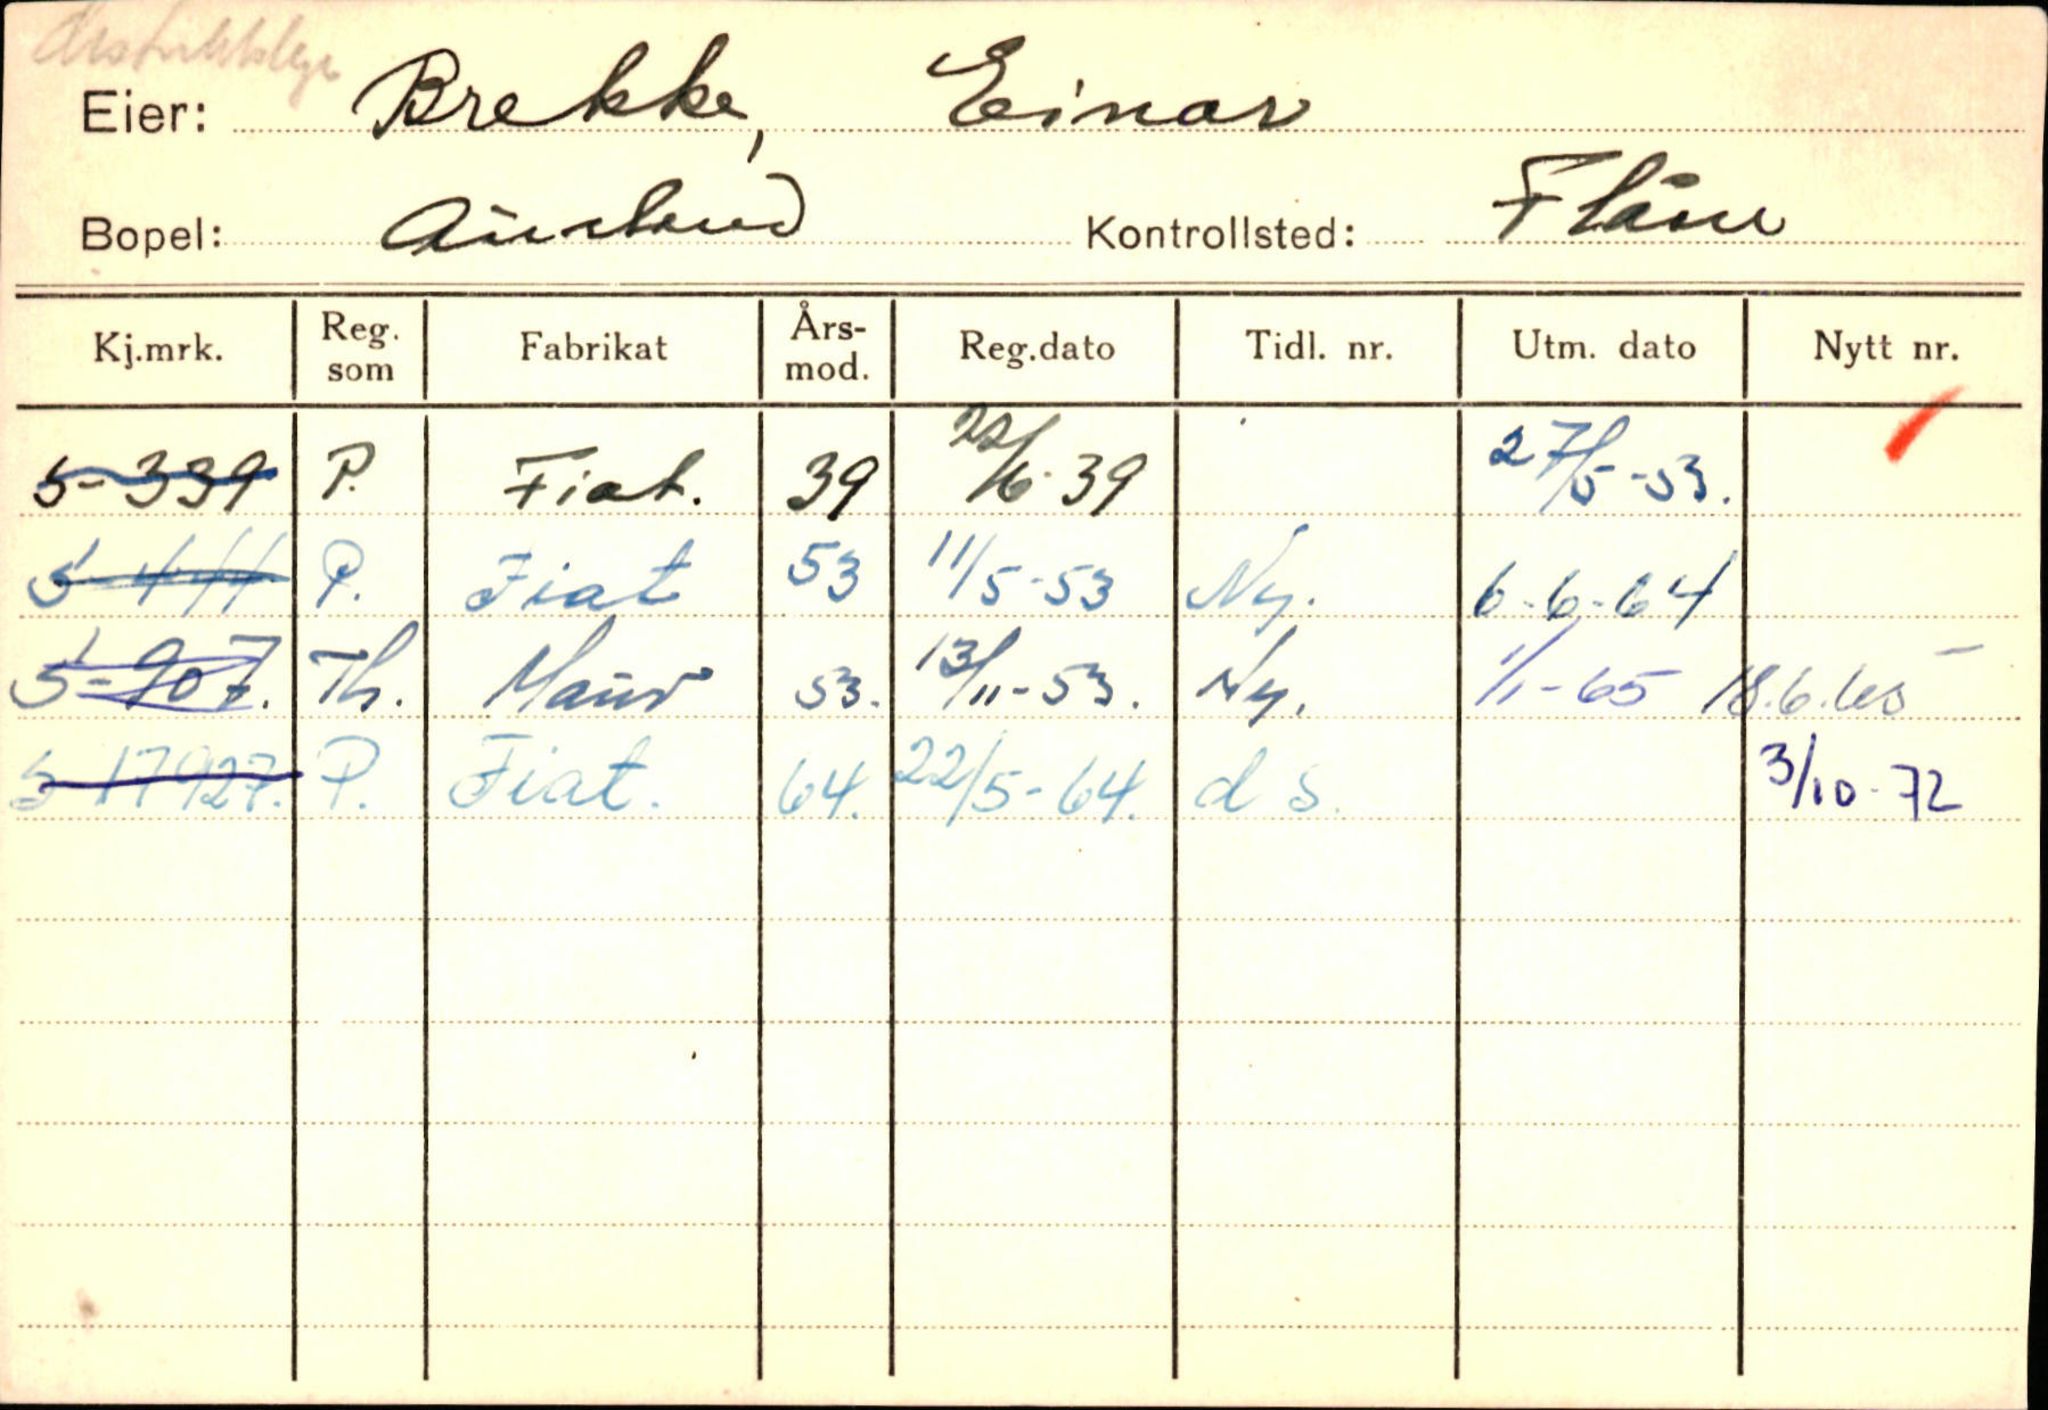 distriktslege
Eier: Brekke, Einar
Bopel: Aurland Kontrollsted: Flåm
Kj.mrk. Reg. som Fabrikat Års-mod. Reg.dato Tidl. nr. Utm. dato Nytt nr.
S-339 P. Fiat. 39 22/6-39 27/5-53.
S-444 P. Fiat 53 11/5-53 Ny. 6-6-64
S-907. Th. 53. 13/11-53. Ny. 1/1-65 18.6.65
S-17927. P. Fiat. 64. 22/5-64. d s. 3/10-72